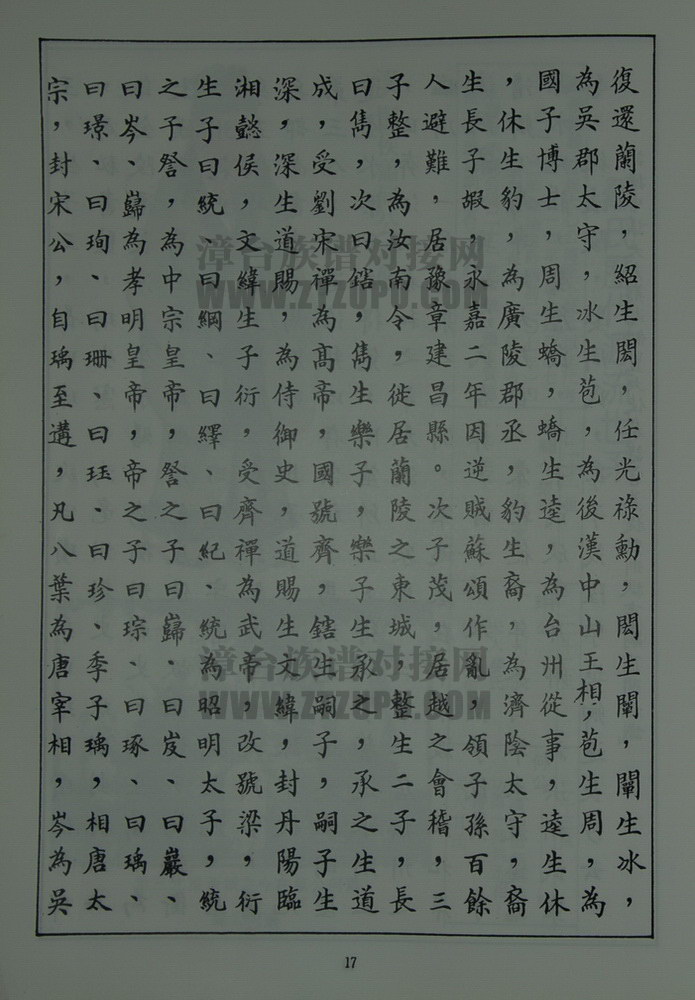 復還蘭陵，紹生閎，任光祿勳，閎生闡，闡生冰，
為吳郡太守，冰生苞，為後漢中山王相，苞生周，為
國子博士，周生蟜，蟜生逵，為台州從事，逵生休
，休生豹，為廣陵郡丞，豹生裔，為濟陰太守，裔
生長子嘏，永嘉二年因逆賊蘇頌作亂，領子孫百餘
人避難，居豫章建昌縣。次子茂，居越之會稽，三
子整，為汝南令，徙居蘭陵之東城，整生二子，長
曰雋，次曰鎋，雋生樂子，樂子生承之，承之生道
成，受劉宋禪為高帝，國號齊，鎋生嗣子，嗣子生
深，深生道賜，為侍御史，道賜生文緯，封丹陽臨
湘懿侯，文緯生子衍，受齊禪為武帝，改號梁，衍
生子曰統、曰綱、曰繹、曰紀、統為昭明太子，統
之子詧，為中宗皇帝，詧之子曰巋、曰岌、曰巖、
曰岑、巋為孝明皇帝，帝之子曰琮、曰琢、曰瑀、
曰璟、曰珣、曰珊、曰玨、曰珍、季子瑀，相唐太
宗，封宋公，自瑀至遘，凡八葉為唐宰相，岑為吳
17
漳台族谱对接网
WWW.ZTZUPU.COM
漳台族谱对接网
WWW.ZTZUPU.COM